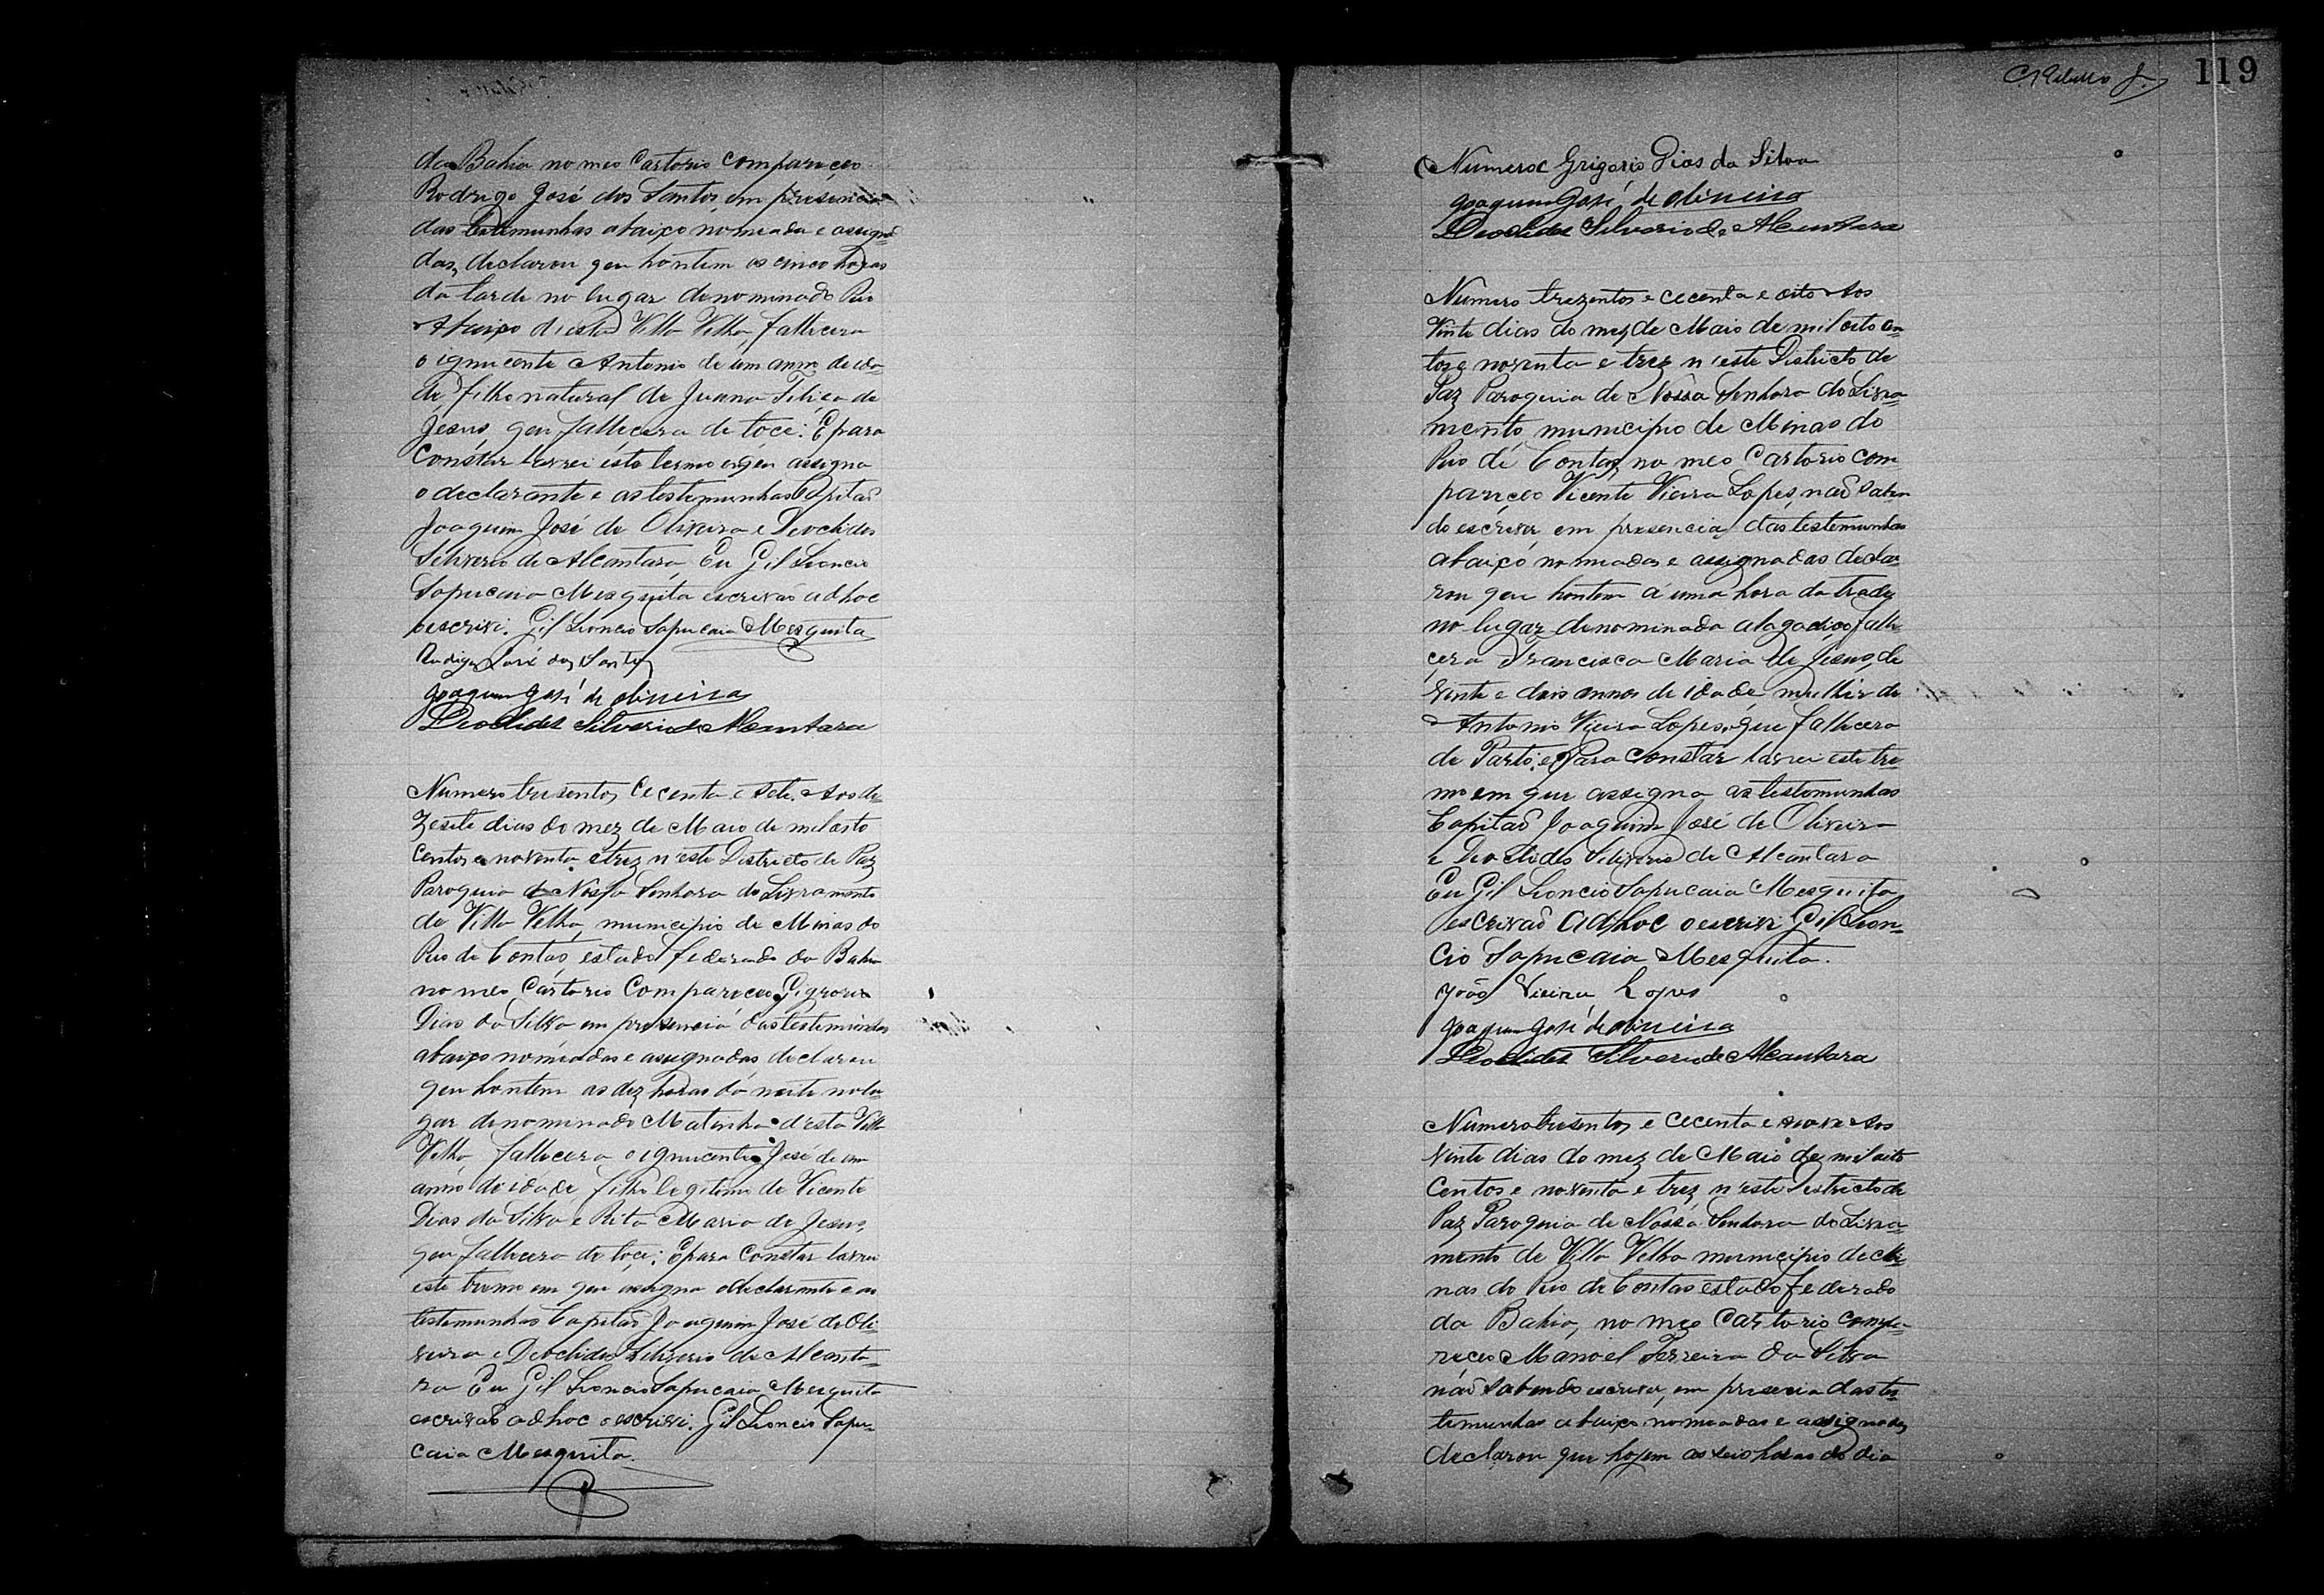 da Bahia no meo Cartorio compareceo
Rodrigo José dos Santos, em presencia
das testemunhas abaixo nomiada e assigna
das, declarou que hontem as cinco horas
da tarde no lugar denominado Rio
Abaixo d'esta Villa Velha, fallecera
o ignucente Antonio de um anno de ida
de filho natural de Juana de
Jesus, que fallecera de toce: E para
Constar lavrei este termo em que assigna
o declarante e as testemunhas Capitaõ
Joaquim José de Oliveira e Deoclides
Silverio de Alcantara, Eu Gil Leoncio
Sapucaia Mesquita escrivaõ ad hoc
o escrivi. Gil Leoncio Sapucaia Mesquita
Rudigo José dos Santos
Joaquim José de Oliveira
Deoclides Silverio de Alcantara
Numero tresentos cecenta e Sete. Aos de=
zesete dias do mez de Maio de mil oito
centos e noventa e trez n'este Districto de Paz
Paroquia de Nossa Senhora do Livramento
de Villa Velha, municipio de Minas do
Rio de Contas, estado federado da Bahia
no meo Cartorio Compareceo Gigrorio
Dias da Silva em presencia das testemunhas
abaixo nomiadas e assignadas declarou
que hontem as dez horas da noite no lu=
gar denominado Matinha d'esta Villa
Velha, fallecera o ignucente José de um
anno de idade, filho legitimo de Vicente
Dias da Silva e Rita Maria de Jesus,
que fallecera de toce: E para Constar lavrei
este termo em que assigna o declarante e as
testemunhas Capitaõ Joaquim José de Oli=
veira e Deoclides Silverio de Alcanta=
ra Eu Gil Leoncio Sapucaia Mesquita
escrivaõ ad hoc o escrivi. Gil Leoncio Sapu=
caia Mesquita.
119
Numeroc Grigorio Dias da Silva
Joaquim José de Oliveira
Deoclides Silverio de Alcantara
Numero trezentos e cecenta e oito Aos
Vinte dias do mez de Maio de mil oito cen=
tos e noventa e trez n'este Districto de
Paz Paroquia de Nossa Senhora do Livra=
mento, municipio de Minas do
Rio de Contas, no meo Cartorio com
pareceo Vicente Vieira Lopes, naõ saben
do escrever, em presencia das testemunhas
abaixo nomiadas e assignadas decla=
rou que hontem á uma hora da trade
no lugar denominado alagadiço falle=
cera Francisca Maria de Jesus, de
vinte e dois annos de idade, mulhér de
Antonio Vieira Lopes, que fallecera
de Parto, e Para Constar lavrei este tre=
mo em que assigna as testemunhas
Capitaõ Joaquim José de Oliveira
e Deoclides Silverio de Alcantara
Eu Gil Leoncio Sapucaia Mesquita,
escrivaõ ad hoc o escrivi Gil Leon=
cio Sapucaia Mesquita.
João Vieira Lopes
Joaquim José de Oliveira
Deoclides Silverio de Alcantara
Numero tresentos e cecenta e nove Aos
Vinte dias do mez de Maio de mil oito
Centos e noventa e trez n'este Districto de
Paz Paroquia de Nossa Senhora do Livra=
mento de Villa Velha municipio de Mi=
nas do Rio de Contas estado federado
da Bahia, no meo Cartorio compa=
receo Manoel Ferreira da Silva
naõ Sabendo escrever, em presencia das tes
timunhas abaixo nomiadas e assignadas,
declarou que hojem as seis horas do dia